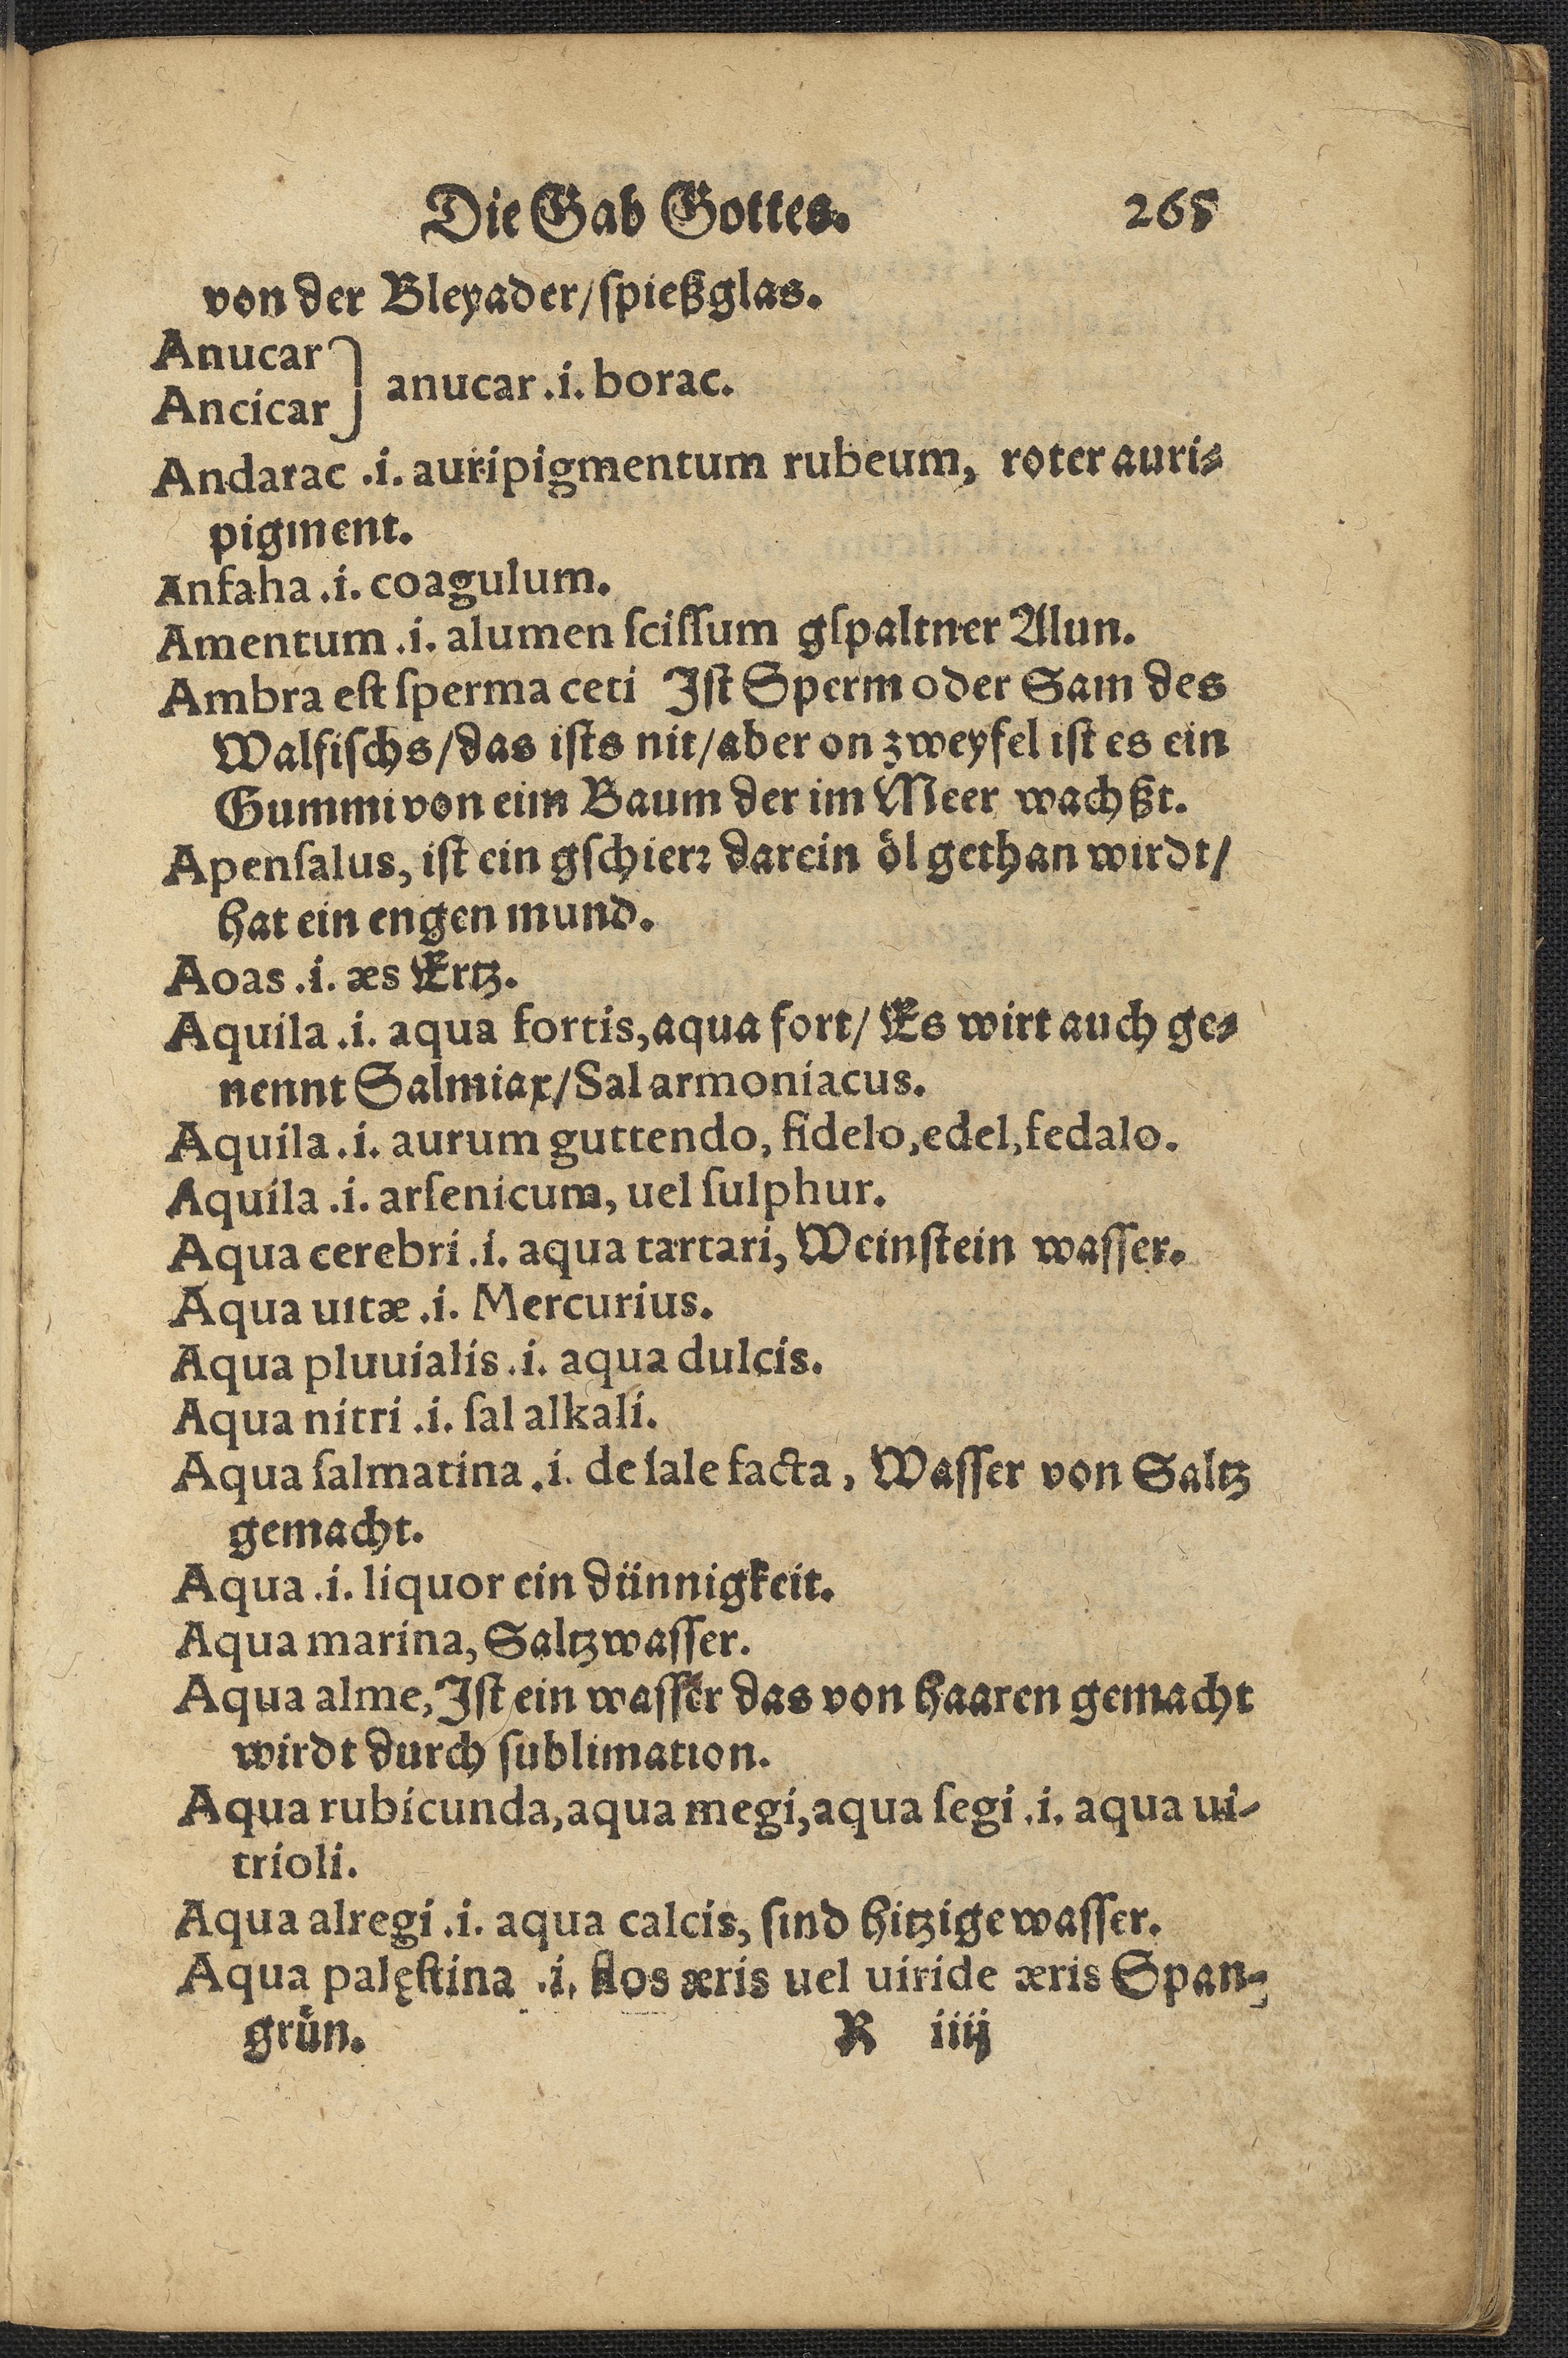 Die Gab Gottes. 265
von der Bleyader/spießglas.
Anucar
Ancicar } anucar .i. borac.
Andarac .i. auripigmentum rubeum, roter auri⸗
pigment.
Anfaha .i. coagulum.
Amentum .i. alumen ſciſſum gſpaltner Alun.
Ambra eſt ſperma ceti Iſt Sperm oder Sam des
Walfiſchs/das iſts nit/aber on zweyfel iſt es ein
Gummi von eim Baum der im Meer wachßt.
Apenſalus, iſt ein gſchierꝛ darein öl gethan wirdt/
hat ein engen mund.
Aoas .i. æs Ertz.
Aquila .i. aqua fortis, aqua fort/ Es wirt auch ge⸗
nennt Salmiax/Sal armoniacus.
Aquila .i. aurum guttendo, fidelo, edel, fedalo.
Aquila .i. arſenicum, uel ſulphur.
Aqua cerebri .i. aqua tartari, Weinſtein waſſer.
Aqua uitæ .i. Mercurius.
Aqua pluuialis .i. aqua dulcis.
Aqua nitri .i. ſal alkali.
Aqua ſalmatina .i. de ſale facta, Waſſer von Saltz
gemacht.
Aqua .i. liquor ein dünnigkeit.
Aqua marina, Saltzwaſſer.
Aqua alme, Iſt ein waſſer das von haaren gemacht
wirdt durch ſublimation.
Aqua rubicunda, aqua megi, aqua ſegi .i. aqua ui-
trioli.
Aqua alregi .i. aqua calcis, ſind hitzige waſſer.
Aqua palęſtina .i. flos æris uel uiride æris Span⸗
grün. R iiij